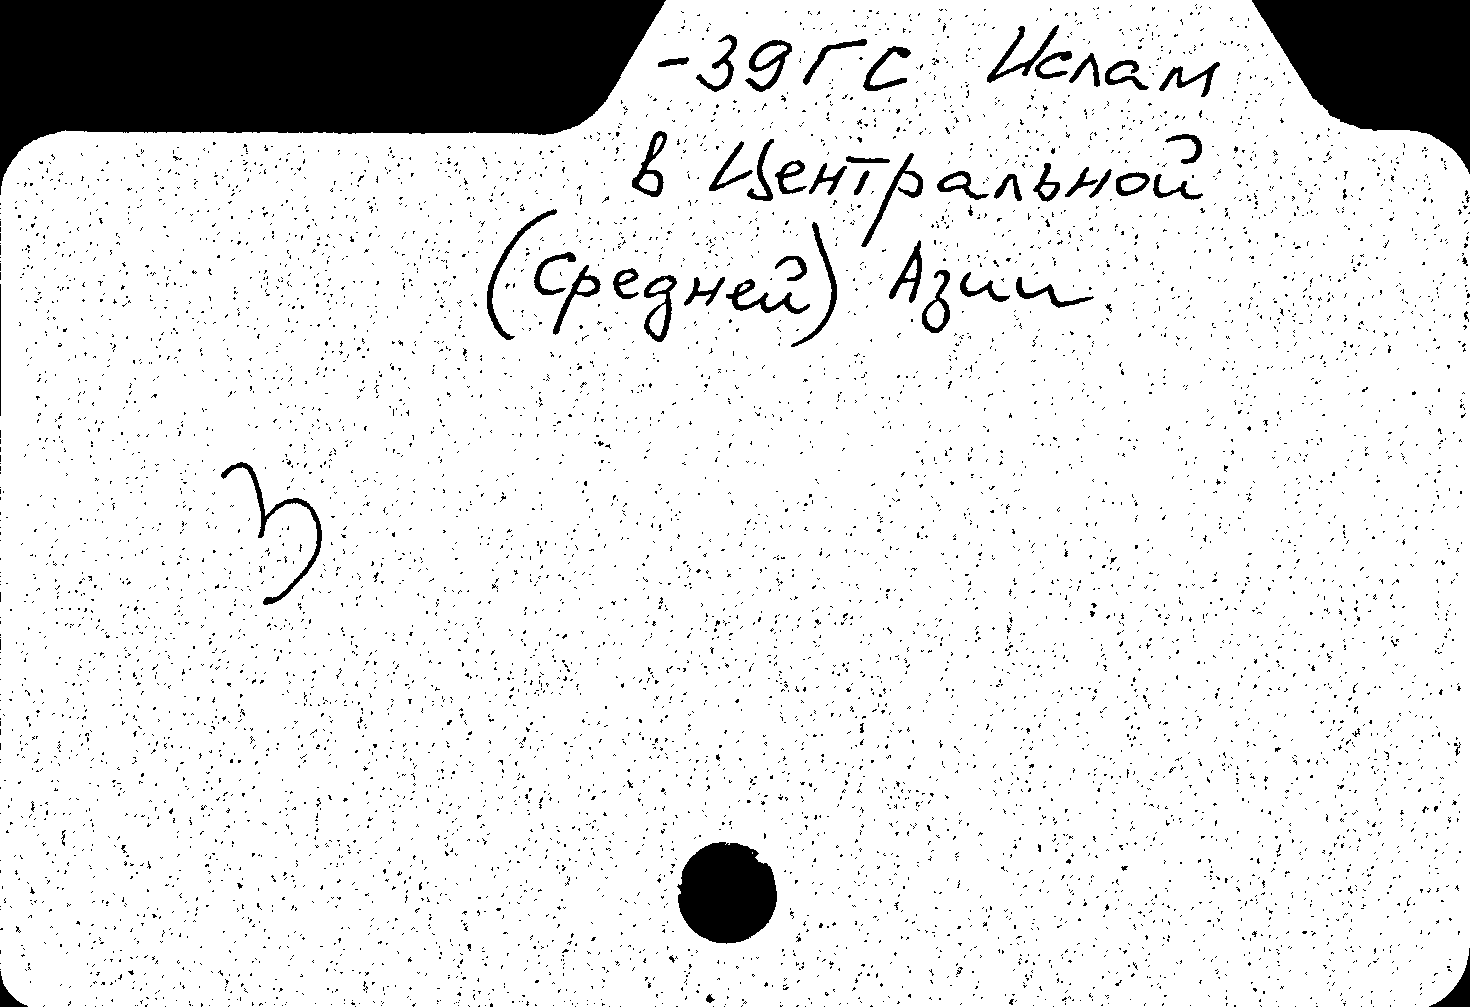 -39гс Ислам
в Центральной
(Средней) Азии